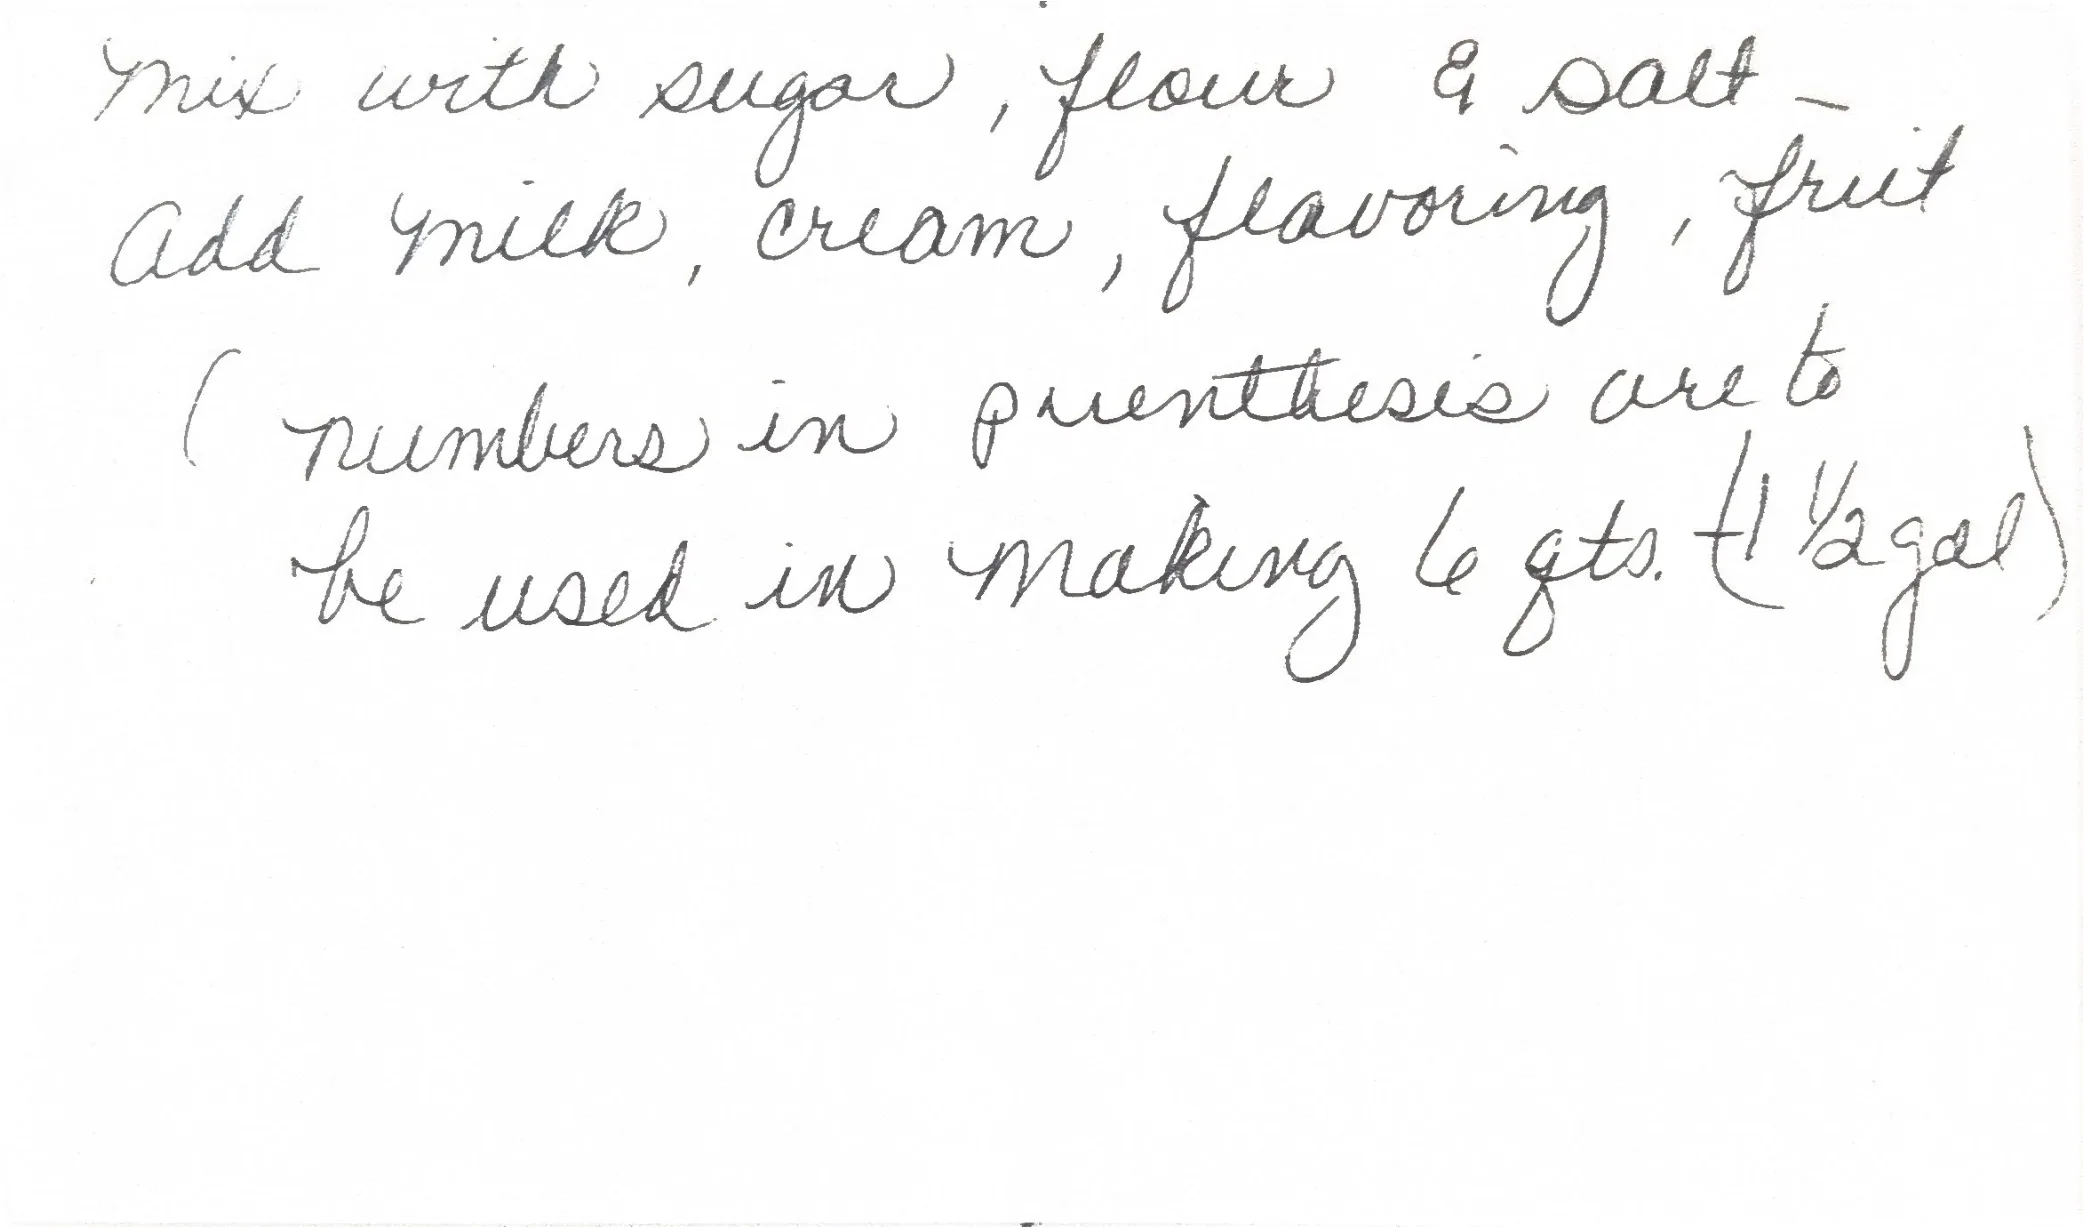 Mix with sugar, flour & salt –
Add milk, cream, flavoring, fruit
( numbers in prenthesis are to
be used in making 6 qts. (1 1/2 gal)